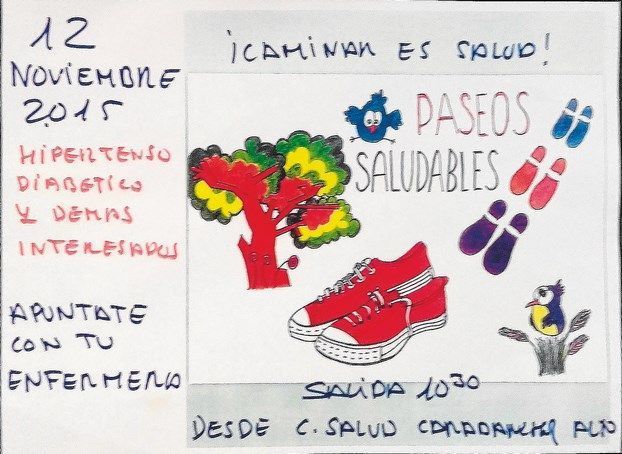 12
NOVIEMBRE
2015
HIPERTENSO
DIABETICO
Y DEMAS
INTERESADOS
APUNTATE
CON TU
ENFERMERO
¡CAMINAR ES SALUD!
PASEOS
SALUDABLES
SALIDA 10³⁰
DESDE C. SALUD CARABANCHEL ALTO